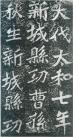 大代太和七年
新城縣功曹孫
秋生新城縣